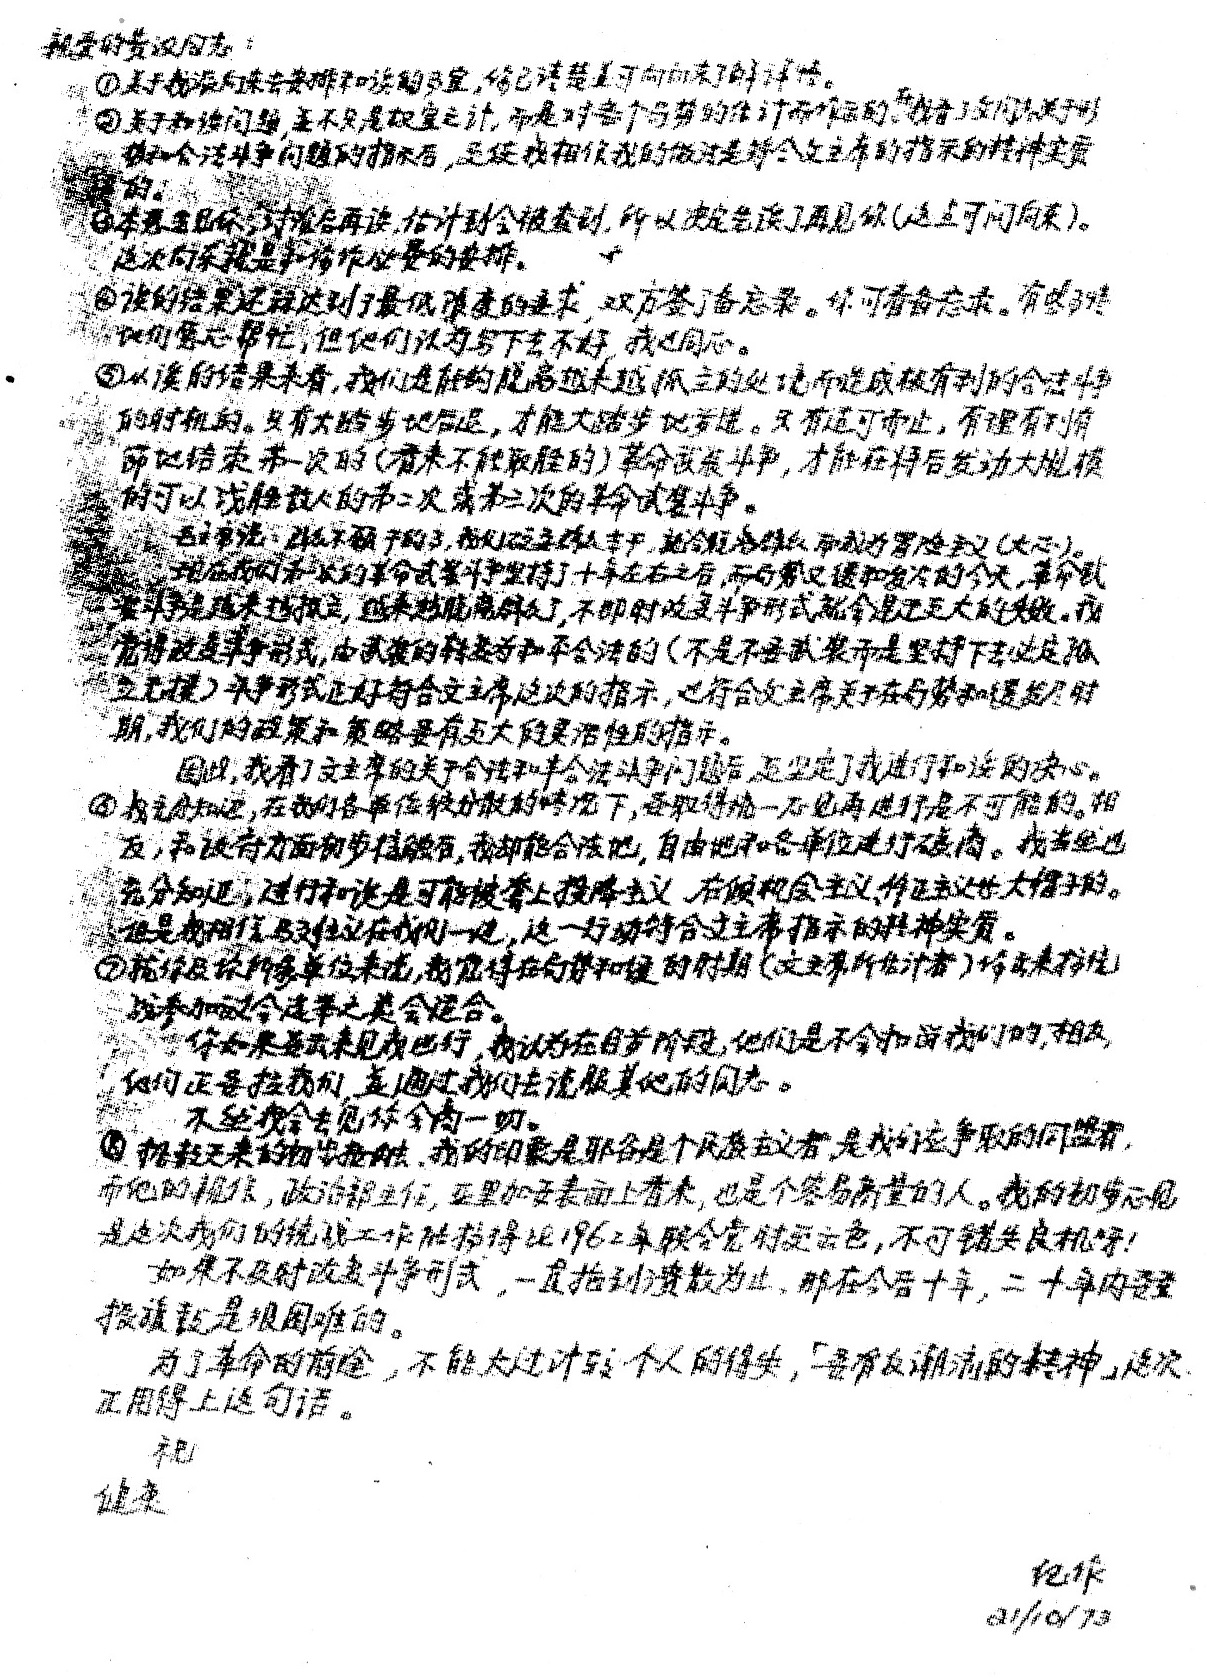 亲爱的黄汉同志：
①关于我派向东去安排和谈的事宜，你已清楚并可向向东了解详情。
②关于和谈问题，并不只是权宜之计，而是对整个局势的估计而作出的。我看了文同志关于形
势和合法斗争问题的指示后，更使我相信我的做法是符合文主席的指示的精神实质
的。
③本想要见你，讨论后再谈，估计到会被牵制，所以决定先谈了再见你（这点可问向东）。
这次向东就是和你作必要的安排。
④谈的结果还算达到了最低限度的要求，双方签了备忘录。你可看备忘录。有些事情
他们愿意帮忙，但他们认为写下去不好，我也同意。
⑤从谈的结果来看，我们是能够脱离越来越孤立的处境而造成较有利的合法斗争
的时机的。只有大踏步地后退，才能大踏步地前进。只有适可而止，有理有利有
节地结束第一次的（看来不能取胜的）革命武装斗争，才能在将后发动大规模
的可以战胜敌人的第二次或第三次的革命武装斗争。
毛主席说：群众不愿干的事，我们硬要群众去干，就会脱离群众而成为冒险主义（大意）。
现在我们第一次的革命武装斗争坚持了十年左右之后，而局势又缓和发展的今天，革命武
装斗争是越来越孤立，越来越脱离群众了，不即时改变斗争形式就会遭受更大的失败。我
觉得改变斗争形式，由武装的转变为和平合法的（不是不要武装而是坚持下去必定孤
立无援）斗争形式正好符合文主席这次的指示，也符合文主席关于在局势和缓发展时
期，我们的政策和策略要有更大的灵活性的指示。
因此，我看了文主席的关于合法和半合法斗争问题后，更坚定了我进行和谈的决心。
⑥我充分知道，在我们各单位较分散的情况下，要取得统一意见再进行是不可能的。相
反，和政府方面初步接触后，我却能合法地，自由地和各单位进行磋商。我当然也
充分知道，进行和谈是可能被套上投降主义、右倾机会主义、修正主义等大帽子的。
但是我相信马列主义在我们一边，这一行动符合文主席指示的精神实质。
⑦就你及你所属单位来说，我觉得在局势和缓的时期（文主席所估计者）你出来搞统
战参加议会选举之类会适合。
你如果要出来见我也行，我认为在目前阶段，他们是不会扣留我们的，相反，
他们正要拉我们，并通过我们去说服其他的同志。
不然我会去见你会商一切。
⑧据数天来的初步接触，我的印象是耶谷是个民族主义者，是我们应争取的同盟者，
而他的机位，政治部主任，亚里加妥表面上看来，也是个容易商量的人。我的初步意见
是这次我们的统战工作能搞得比1962年联合党时更出色，不可错失良机呀！
如果不及时改变斗争形式，一直拖到溃散为止，那在今后十年，二十年内要重
振旗鼓是很困难的。
为了革命的前途，不能太过计较个人的得失，「要有反潮流的精神」这次
正用得上这句话。
祝
健康
纪作
21/10/73